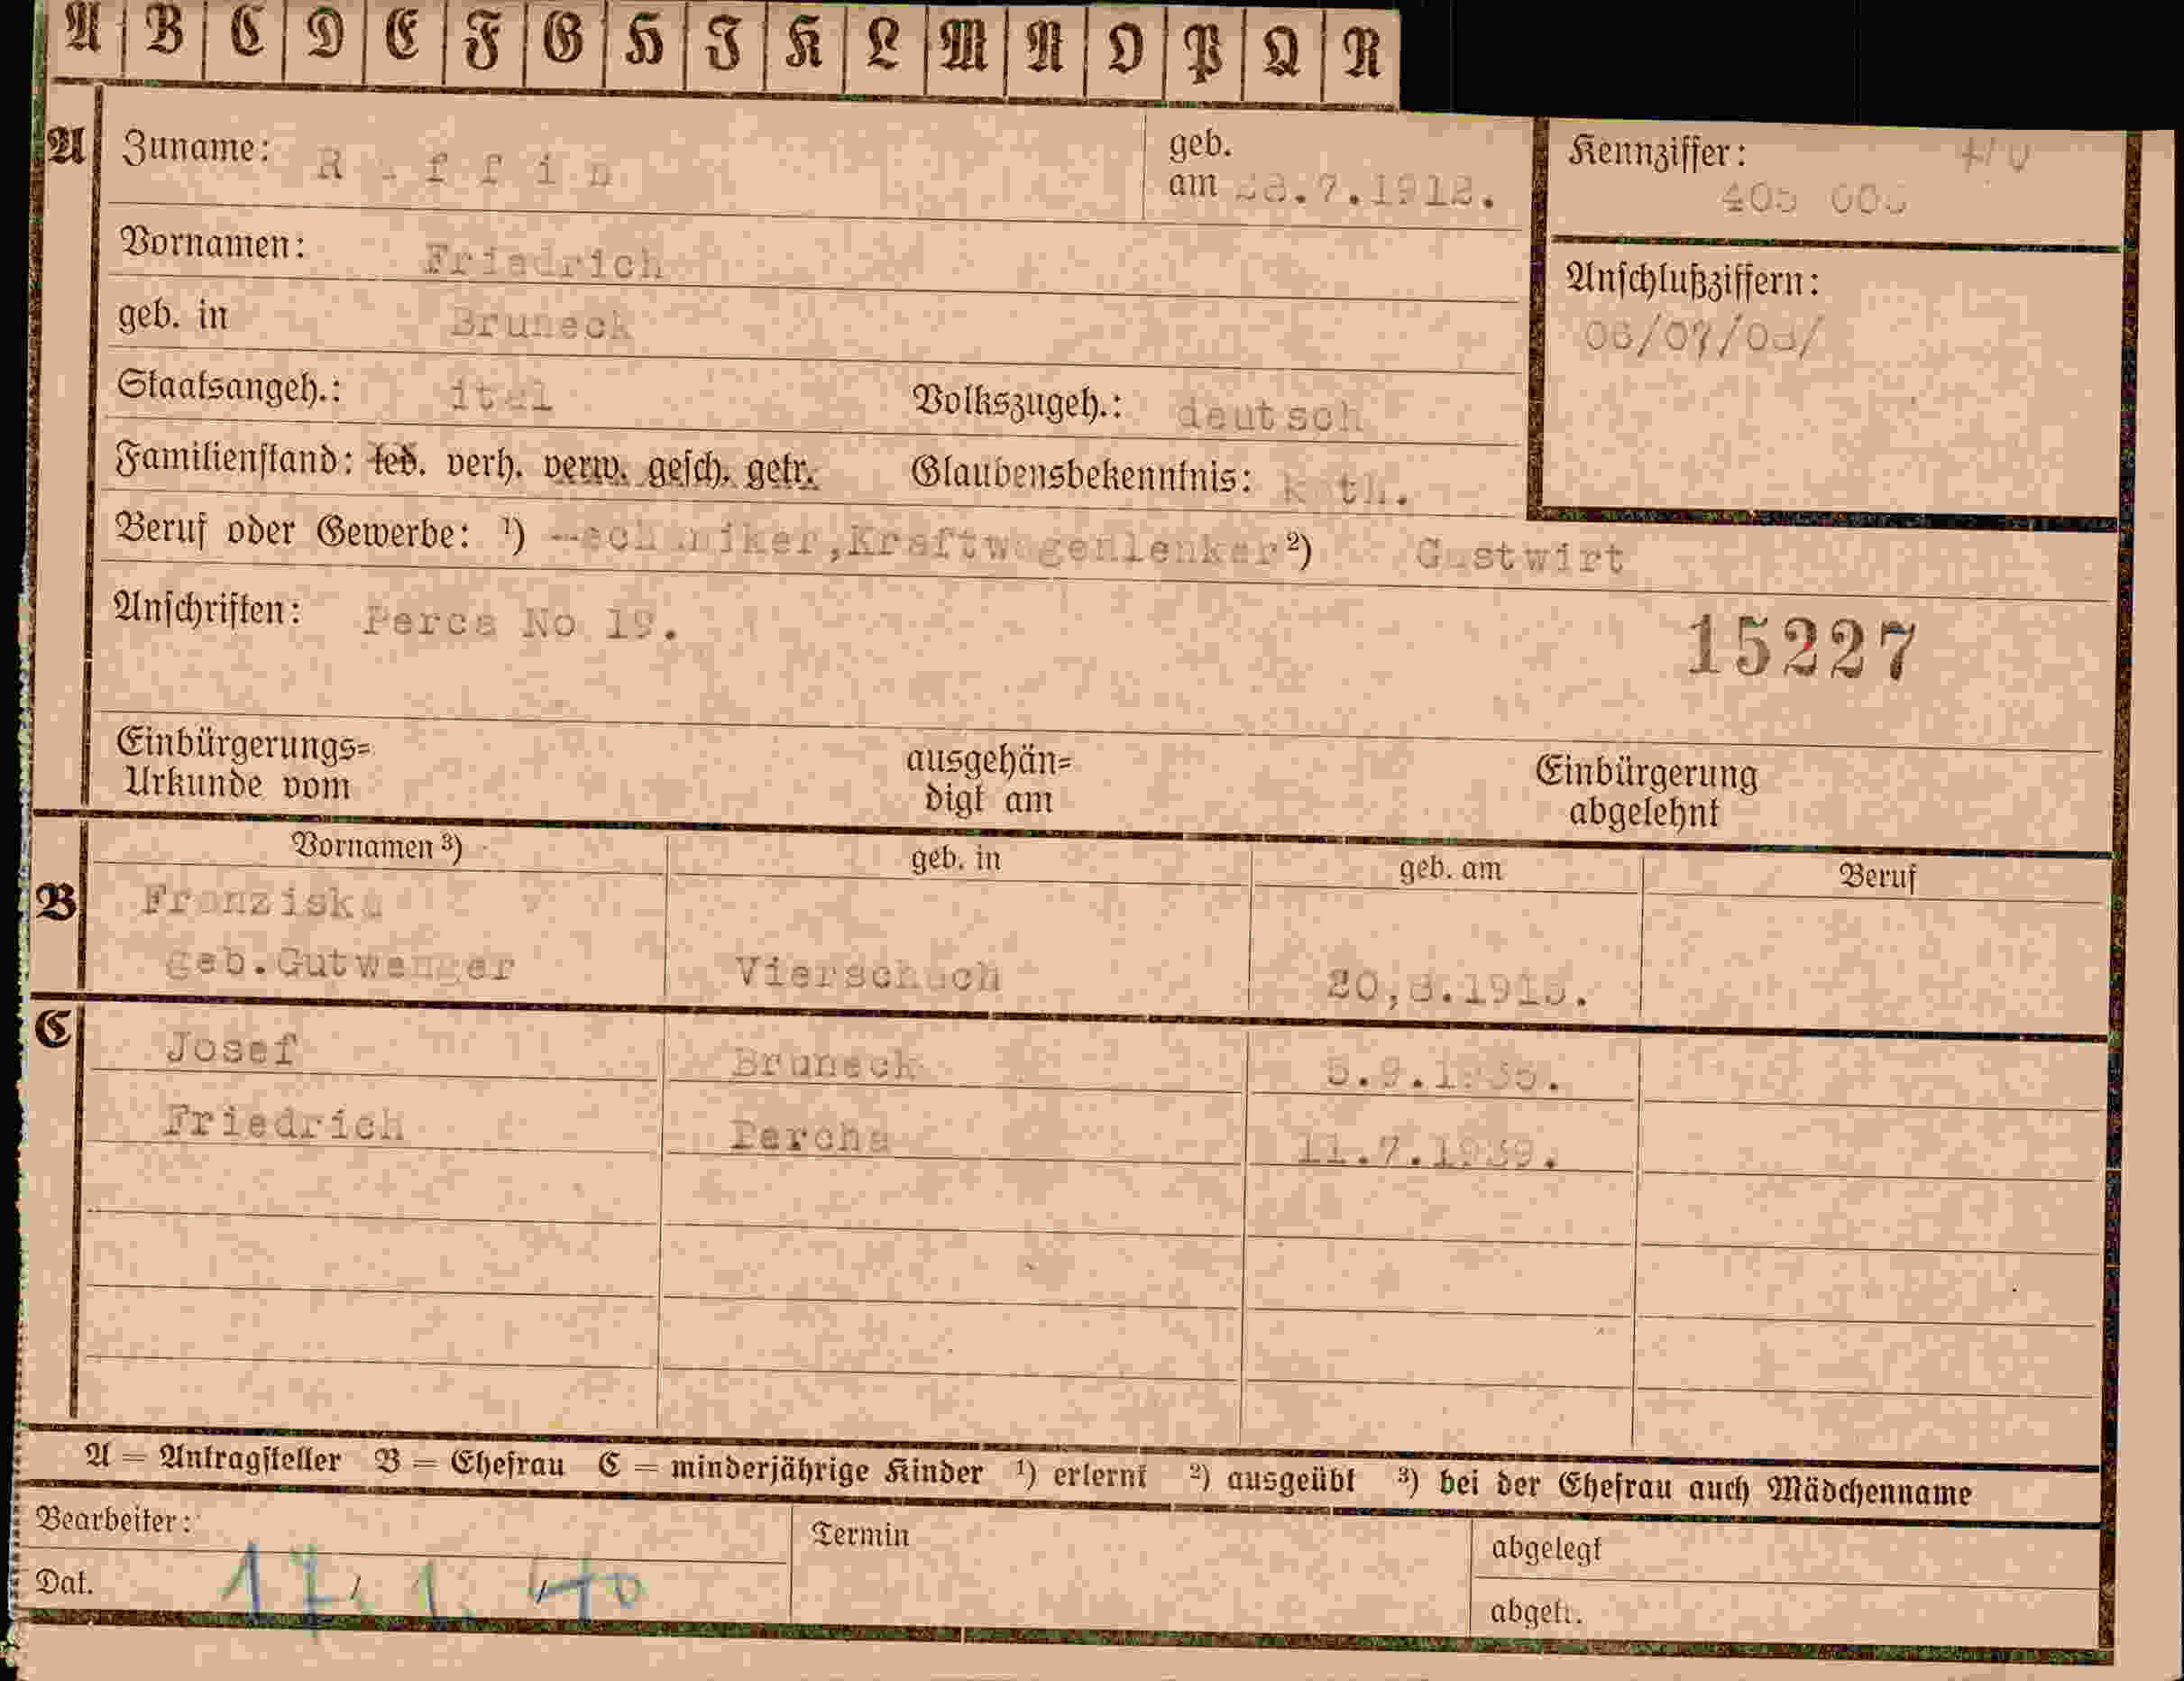 A B C D E F G H J K L M N O P Q R
A Zuname: geb. am Kennziffer:
Vornamen: Friedrich Anschlußziffern:
geb. in Bruneck
Staatsangeh.: ital Volkszugeh.: deutsch
Familienstand: led. verh. verw. gesch. getr. Glaubensbekenntnis: kath.
Beruf oder Gewerbe: 1) Mechaniker,Kraftwagenlenker 2) Gastwirt
Anschriften: Perca No 19.
15227
Einbürgerungs= ausgehän= Einbürgerung
Urkunde vom digt am abgelehnt
Vornamen 3) geb. in geb. am Beruf
B Franziska
geb.Gutwenger Vierschach
C Josef Bruneck
Friedrich Percha 11.7.1939.
A = Antragsteller B = Ehefrau C = minderjährige Kinder 1) erlernt 2) ausgeübt 3) bei der Ehefrau auch Mädchenname
Bearbeiter: Termin abgelegt
Dat. 17. 1. 40 abgeh.